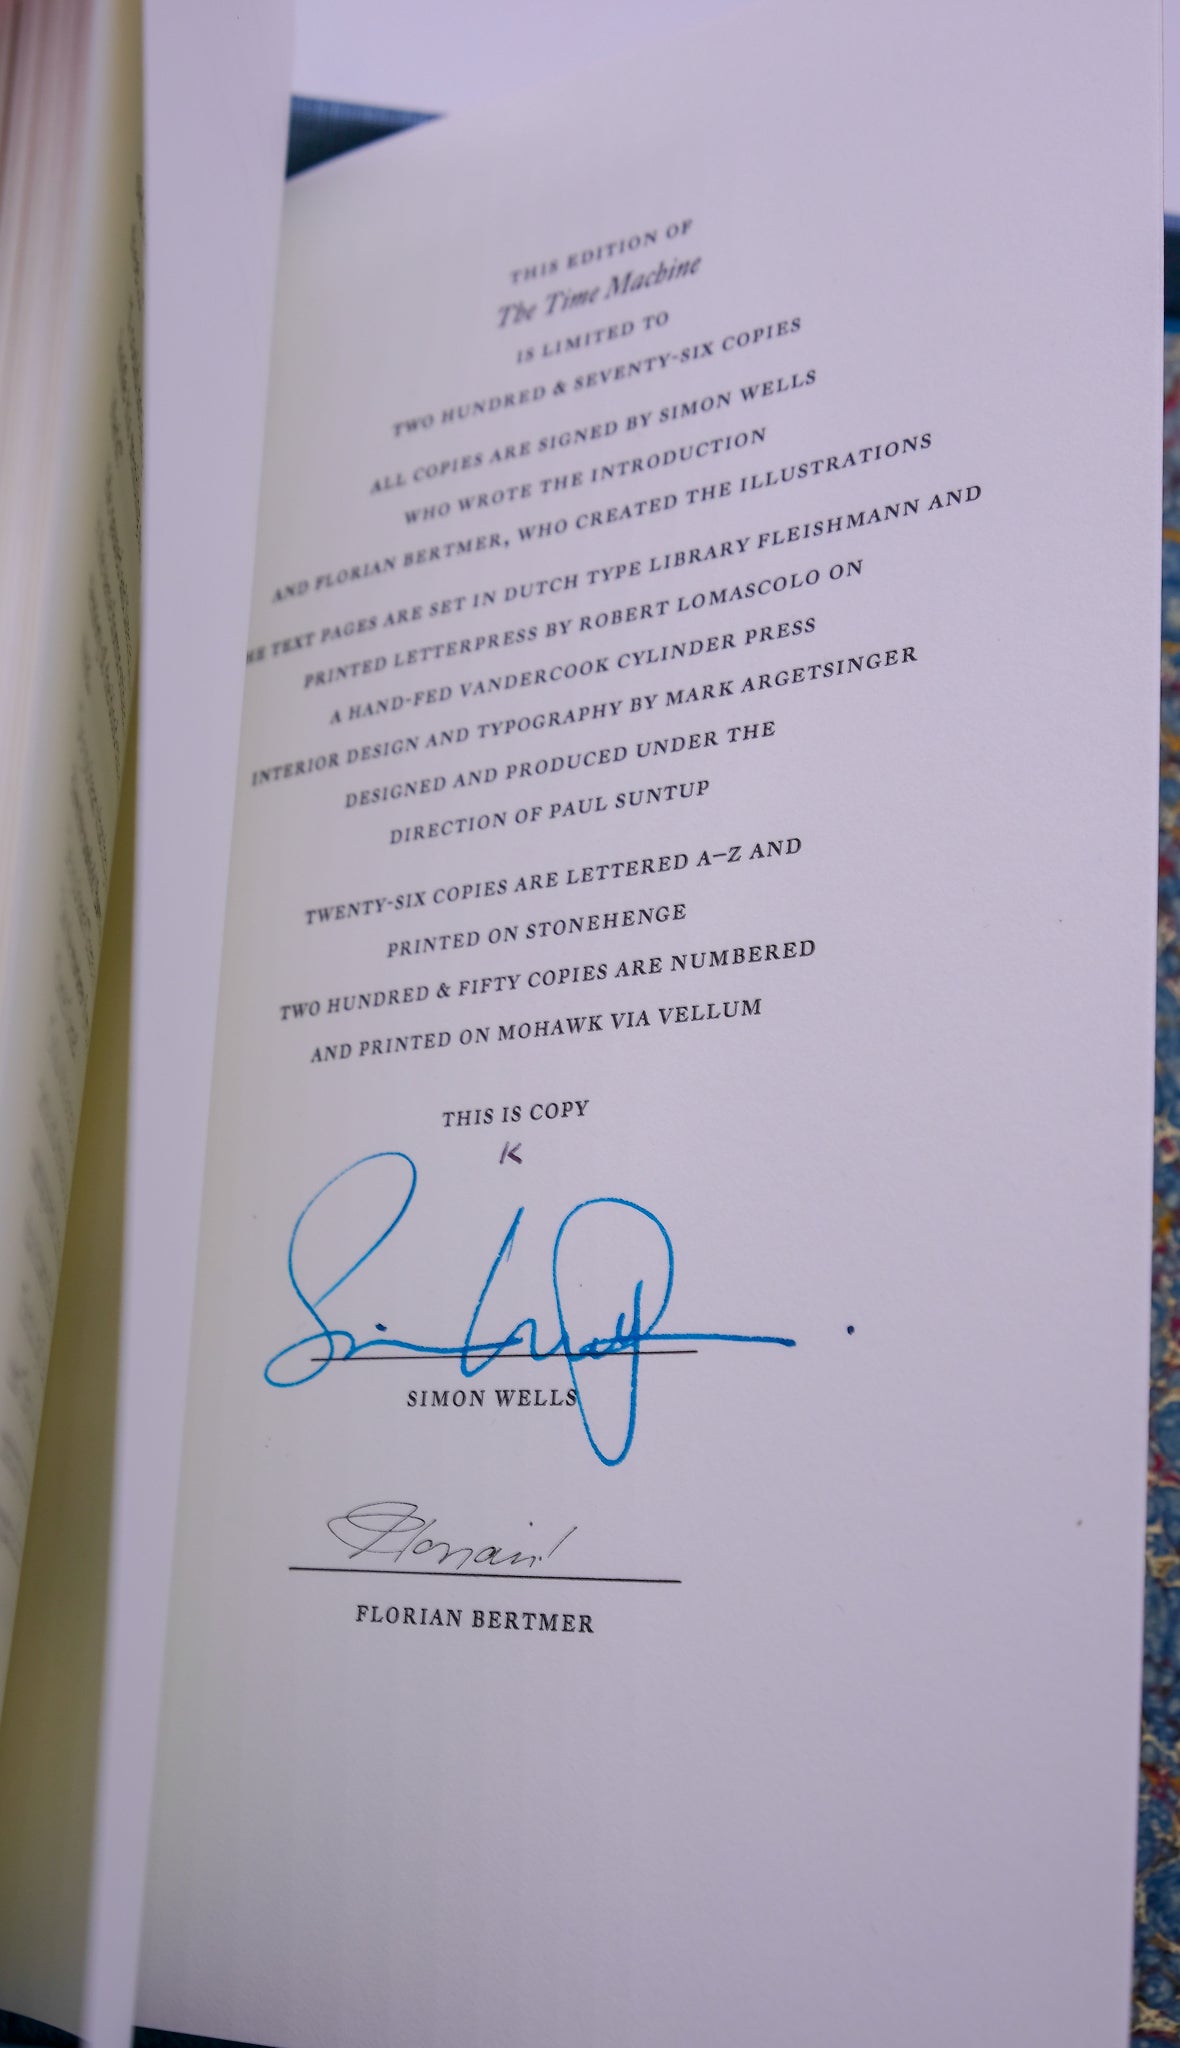 THIS EDITION OF
The Time Machine
IS LIMITED TO
TWO HUNDRED & SEVENTY-SIX COPIES
ALL COPIES ARE SIGNED BY SIMON WELLS
WHO WROTE THE INTRODUCTION
AND FLORIAN BERTMER, WHO CREATED THE ILLUSTRATIONS
HE TEXT PAGES ARE SET IN DUTCH TYPE LIBRARY FLEISHMANN AND
PRINTED LETTERPRESS BY ROBERT LOMASCOLO ON
A HAND-FED VANDERCOOK CYLINDER PRESS
INTERIOR DESIGN AND TYPOGRAPHY BY MARK ARGETSINGER
DESIGNED AND PRODUCED UNDER THE
DIRECTION OF PAUL SUNTUP
TWENTY-SIX COPIES ARE LETTERED A–Z AND
PRINTED ON STONEHENGE
TWO HUNDRED & FIFTY COPIES ARE NUMBERED
AND PRINTED ON MOHAWK VIA VELLUM
THIS IS COPY
K
SIMON WELLS
FLORIAN BERTMER